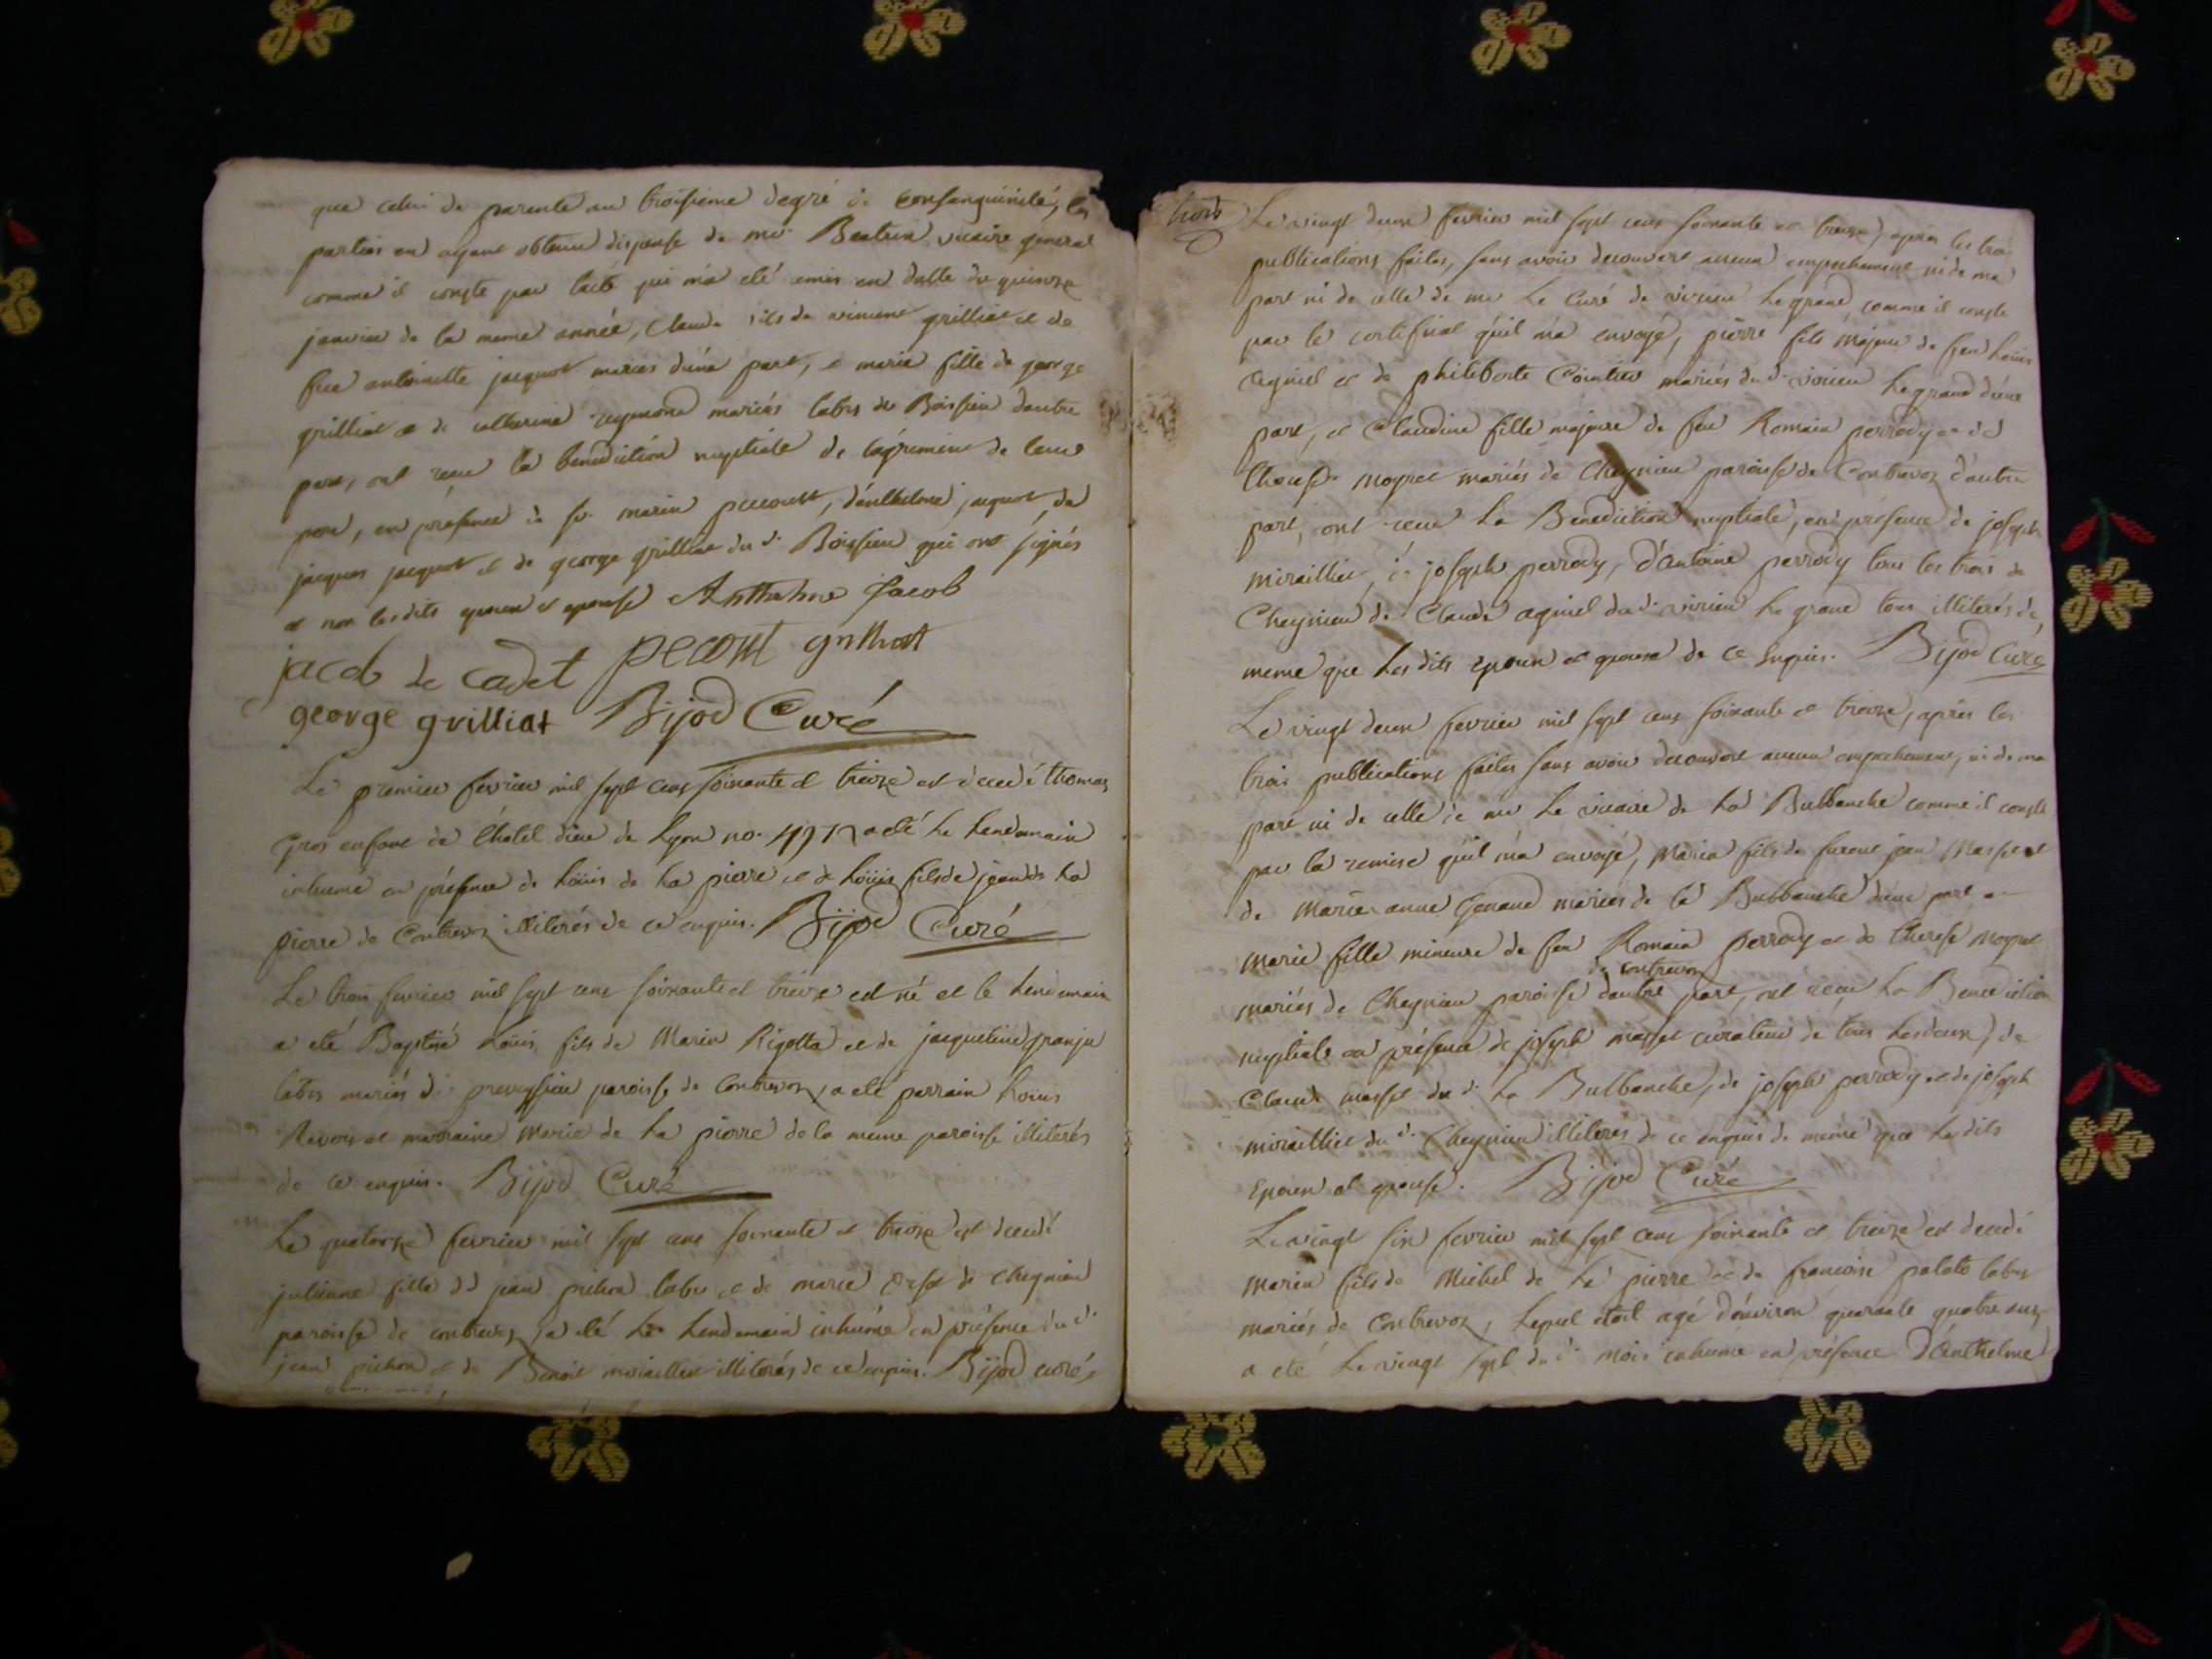 que celui de parenté au troisieme degré de consanguinité, les
parties en ayant obtenu dispense de mr. vicaire general
comme il conste par lacte qui m'a eté emis en datte du quinze
janvier de la meme année, Claude fils de vincent grilliat et de
feue antoinette jacquot mariés d'une part, et marie fille de george
grilliat et de catherine reymond mariés labrs de Boissieu dautre
part, ont recu la benediction nuptiale de lagrement de leur
pere, en présence de sr. marin pecourt, d'anthelme jaquot, de
jacques jacquot et de george grilliat du d. Boissieu qui ont signés
et non lesdits epoux et epouse Anthelme jacob
jacob le cadet pecourt grilliat
george grilliat Bijod Curé
Le premier fevrier mil sept cens soixante et treize est decedé thomas
Gros enfant de l'hotel dieu de Lyon no. a eté le lendemain
inhumé en présence de Loüis de la pierre et de Loüis fils de jean de la
pierre de Contrevoz illiterés de ce enquis. Bijod Curé
Le trois fevrier mil sept cens soixante et treize est né et le lendemain
a eté Baptisé Louis fils de Marin Rigotta et de jacqueline granju
labrs mariés de preveyssieu paroisse de Contrevoz, a eté parrain Loüis
et marraine Marie de la pierre de la meme paroisse illiterés
de ce enquis. Bijod Curé
Le quatorze fevrier mil sept cens soixante et treize est decedé
julienne fille de jean pichon labr et de marie de Cheynieu
paroisse de contrevoz, a eté le lendemain inhumé en présence du d.
jean pichon et de Benoit miraillier illiterés de ce enquis. Bijod curé
Le vingt deux fevrier mil sept cens soixante et treize, apres les trois
publications faites, sans avoir decouvert aucun empechement ni de ma
part ni de celle de mr le Curé de virieu le grand comme il conste
par le certificat qu'il m'a envoyé, pierre fils majeur de feu Loüis
aginel et de philiberte Cointier mariés du d. virieu le grand d'une
part, et Claudine fille majeure de feu Romain perrody et de
therese moyret mariés de Cheynieu paroisse de Contrevoz d'autre
part, ont recu la Benediction nuptiale, en présence de joseph
miraillier, de joseph perrody, d'antoine perrody tous les trois de
Cheynieu de Claude aginel du d. virieu le grand tous illiterés de
meme que lesdits epoux et epouse de ce enquis. Bijod Curé
Le vingt deux fevrier mil sept cens soixante et treize, apres les
trois publications faites sans avoir decouvert aucun empechement, ni de ma
part ni de celle de mr le vicaire de la Burbanche comme il conste
par la remise quil m'a envoyé, Marin fils de furent jean Masset et
de Marie anne Genand mariés de la Burbanche d'une part et
marie fille mineure de feu Romain perrody et de therese moyret
de contrevoz
mariés de Cheynieu paroisse dautre part, ont recu la Benediction
nuptiale en présence de joseph masset curateur de tous les deux, de
Claude masset du d. la Burbanche, de joseph perrody et de joseph
miraillier du d. Cheynieu illiterés de ce enquis de meme que lesdits
Epoux et epouse. Bijod Curé
Le vingt six fevrier mil sept cens soixante et treize est decedé
Marin fils de Michel de la pierre et de francoise palate labrs
mariés de Contrevoz, lequel etoit agé d'environ quarante quatre ans,
a eté le vingt sept du d. mois inhumé en présence d'Anthelme